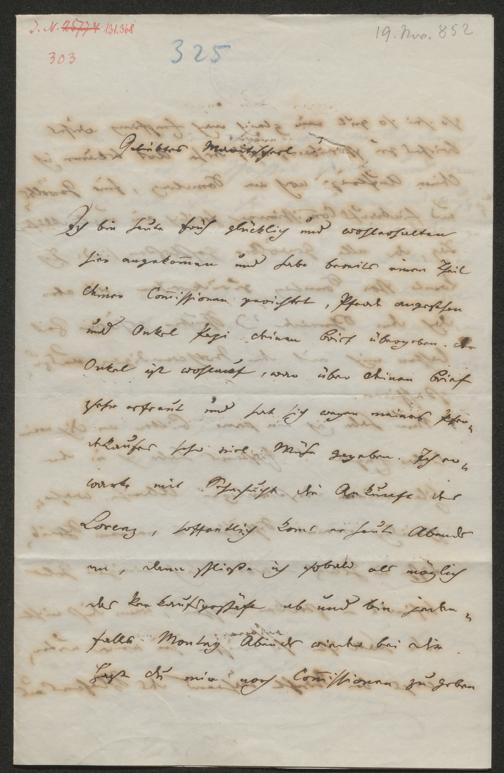 J. N. 25774 131.368
19. Nov. 852
303
325
Geliebtes
Ich bin heute früh glücklich und wohlerhalten
hier angekommen und habe bereits einen Theil
deiner Commissionen verrichtet, Pferde angesehen
und Onkel deinen Brief übergeben. Der
Onkel ist wohlauf, war über deinen Brief
sehr erfreut und hat sich wegen meines Pfer-
dekaufes sehr viel Mühe gegeben. Ich er-
warte mit Sehnsucht die Ankunft des
Lorenz, hoffentlich komt er heute Abends
an, dann schließe ich sobald als möglich
das Verkaufsgeschäft ab und bin jeden-
falls Montag Abends wieder bei dir.
Hast du mir noch Commissionen zu geben